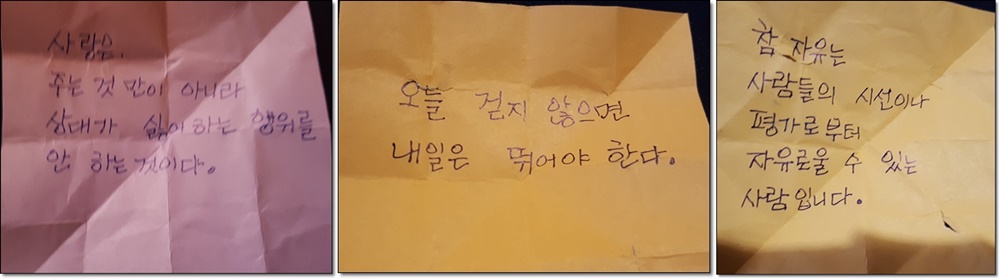 사랑은,
주는 것 만이 아니라
상대가 싫어하는 행위를
안 하는 것이다.
오늘 걷지 않으면
내일은 뛰어야 한다.
참 자유는
사람들의 시선이나
평가로부터
자유로울 수 있는
사람입니다.